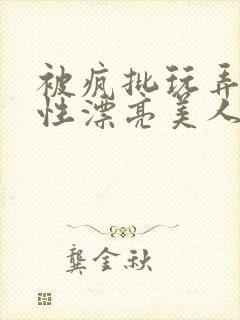 被疯批玩弄
性漂亮美人
龚金秋